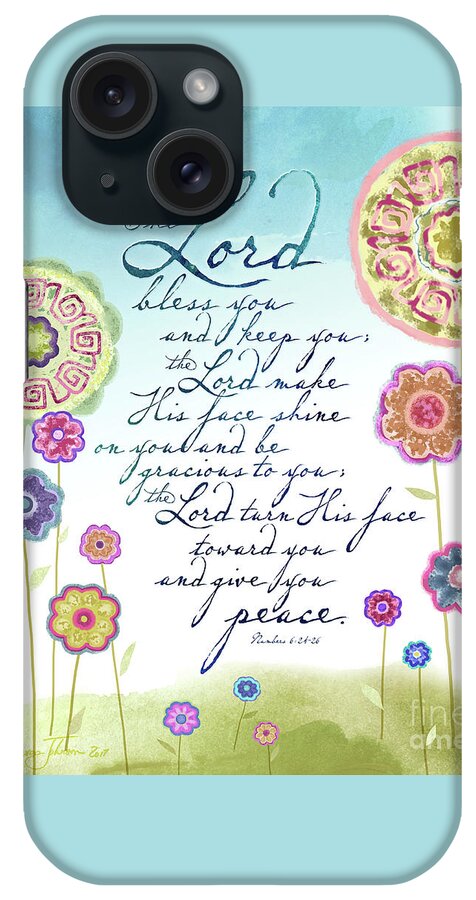 The
Lord
bless you
and keep you;
the Lord make
His face shine
on you and be
gracious to you;
the Lord turn His face
toward you
and give you
peace.
Numbers 6:24-26
2017
fine
ame